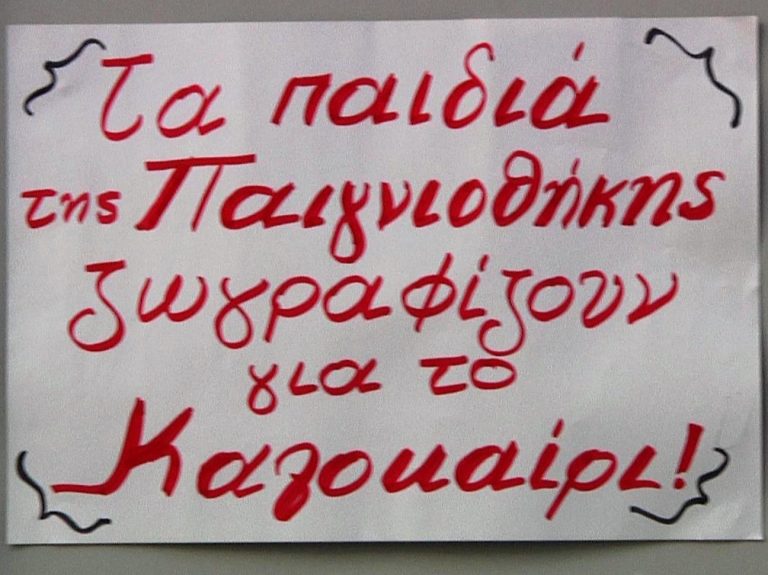 Τα παιδιά
της Παιγνιοθήκης
ζωγραφίζουν
για το
Καλοκαίρι!